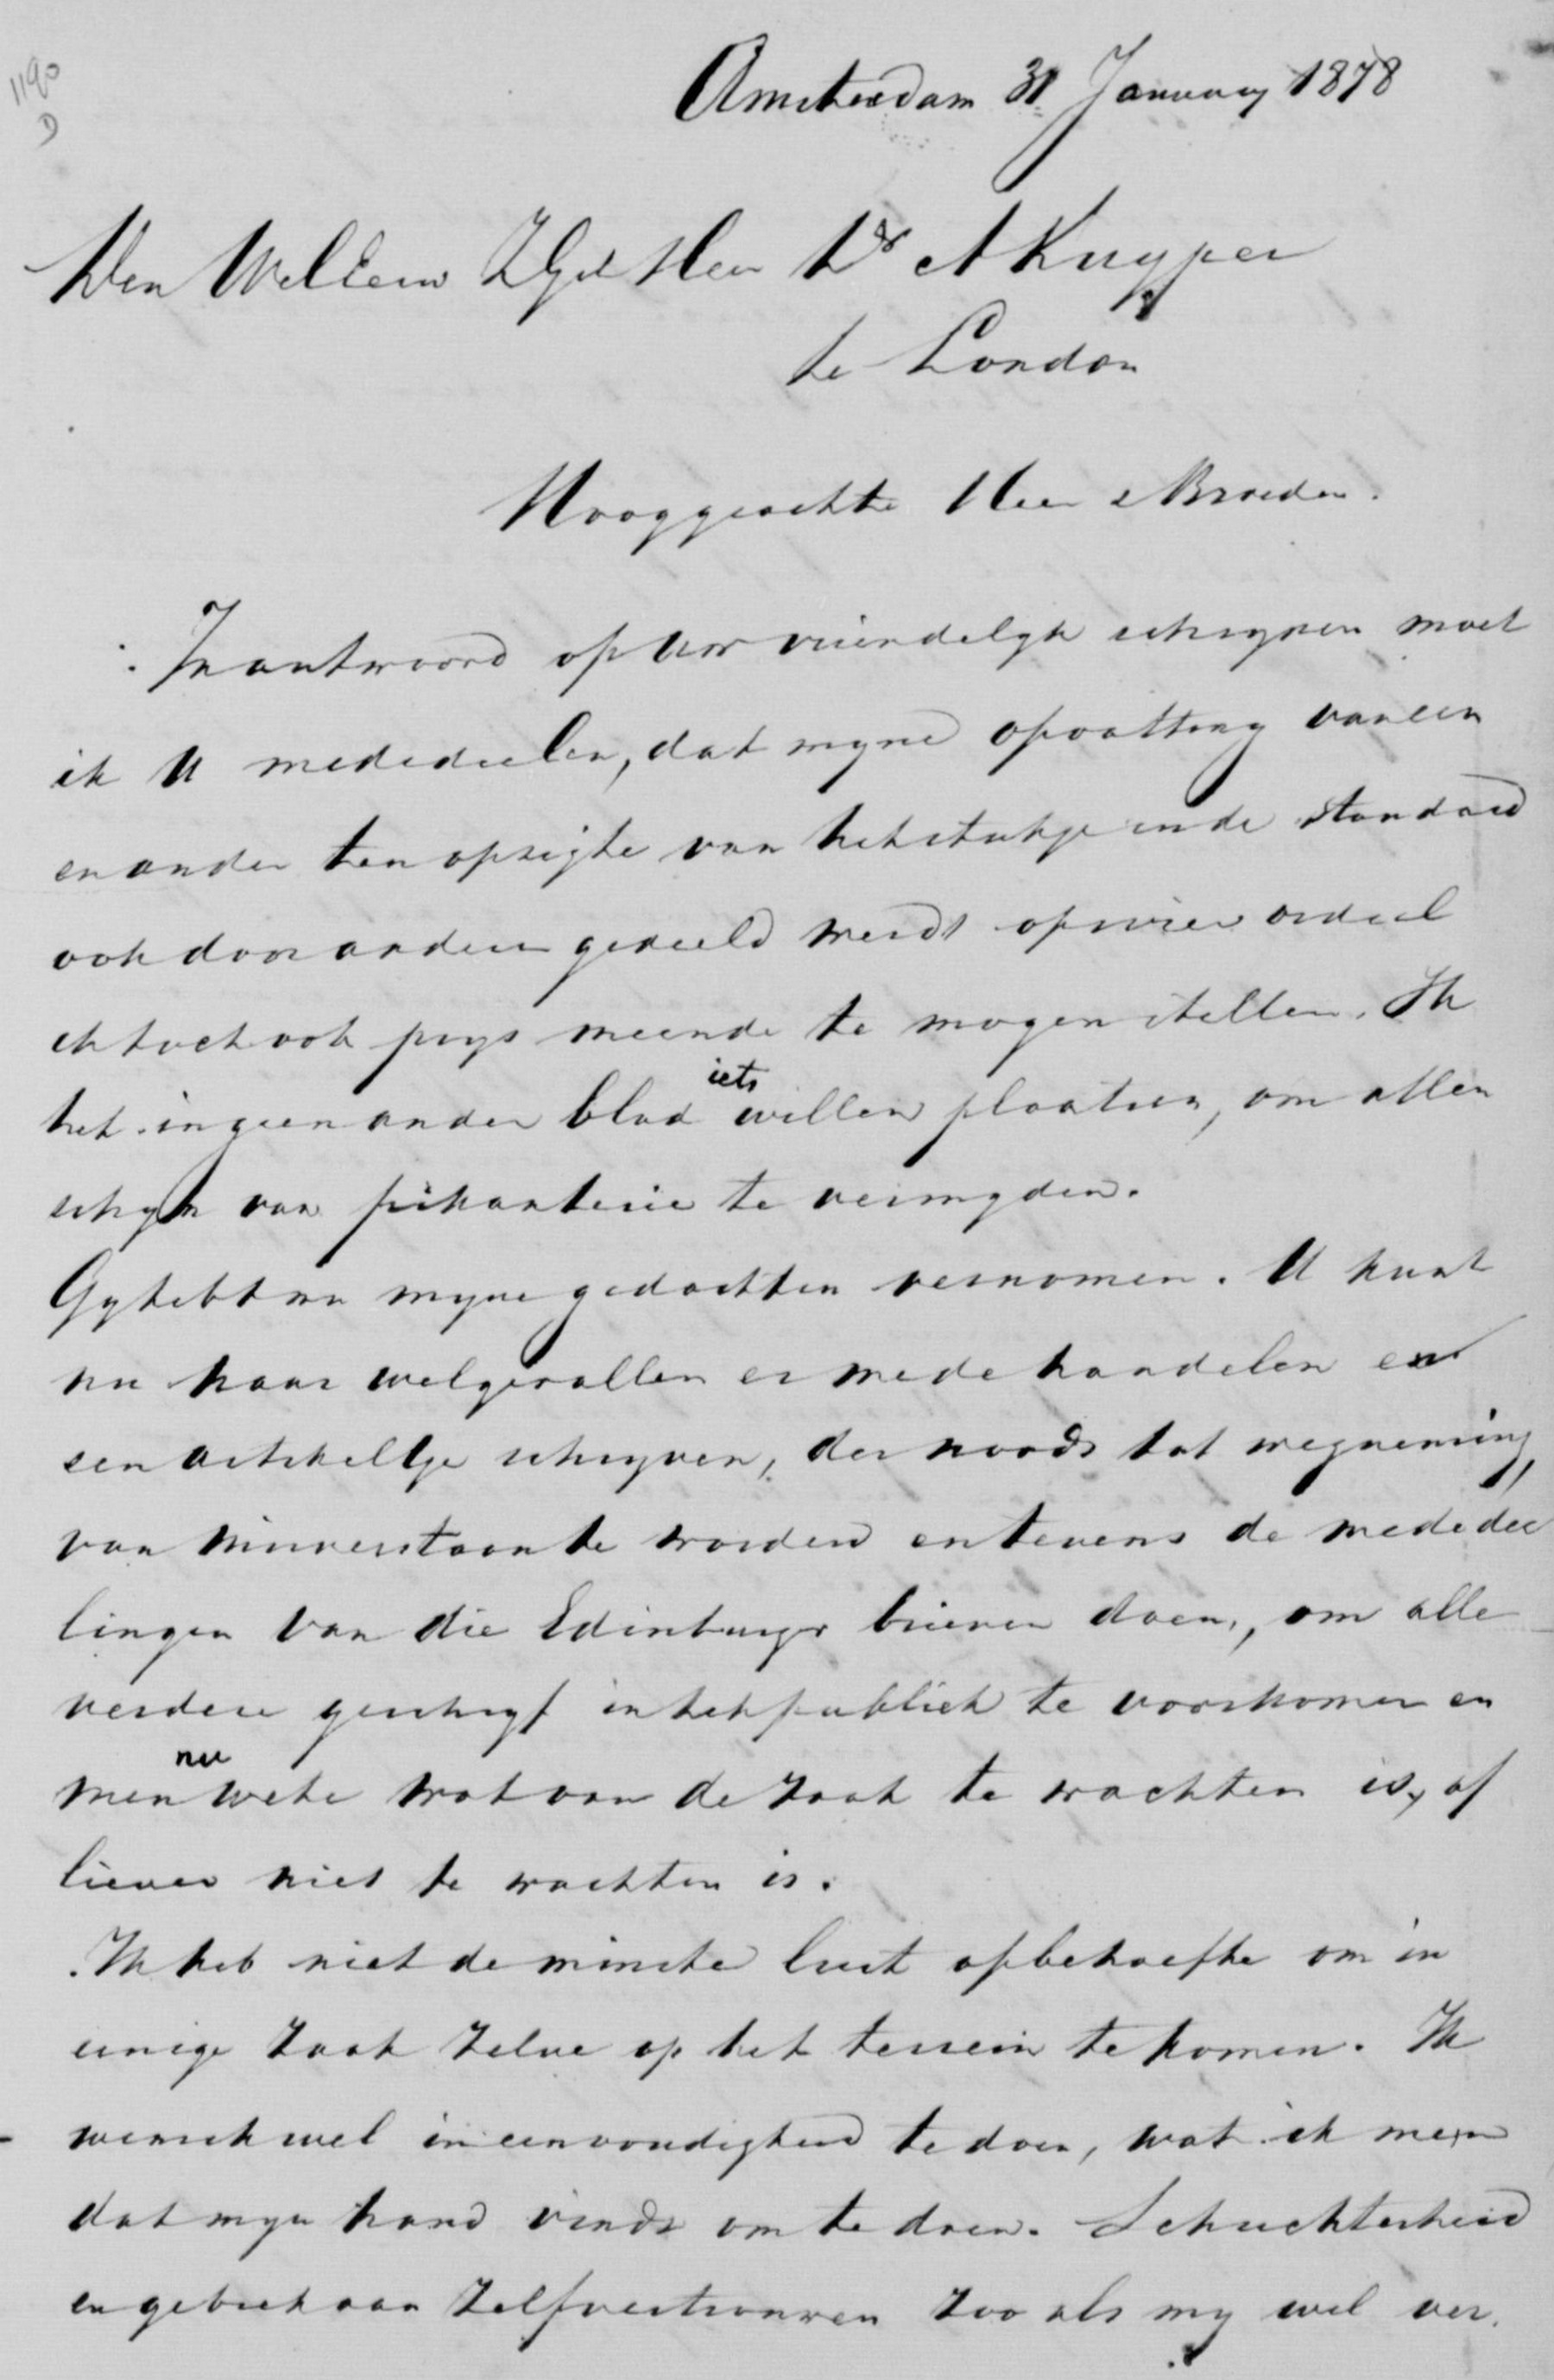 1190
D
Amsterdam 31 January 1878
Den WelEerw ZGel Heer Dr A Kuyper
te London
Hooggeachte Heer & Broeder.
In antwoord op Uw vriendelyk schryven moet
ik U mededeelen, dat myne opvatting van een
en ander ten opzigte van het stukje in de Standaard
ook door anderen gedeeld werdt op wier ordeel
ik toch ook prys meende te mogen stellen. Ik
heb in geen ander blad iets willen plaatsen, om allen
schyn van pikanterie te vermyden.
Gy hebt nu myne gedachten vernomen. U kunt
nu naar welgevallen er mede handelen en
een artikeltje schryven, des noods tot wegneming
van misverstaan te worden en tevens de mededee
lingen van die Edinburger brieven doen, om alle
verdere geschryf in het publiek te voorkomen en
men nu wete wat van de zaak te wachten is, of
liever niet te wachten is.
Ik heb niet de minste lust of behoefte om in
eenige zaak zelve op het terrein te komen. Ik
wensch wel in eenvoudigheid te doen, wat ik meen
dat myn hand vindt om te doen. Schuchterheid
en gebrek aan zelfvertrouwen zoo als my wel ver.